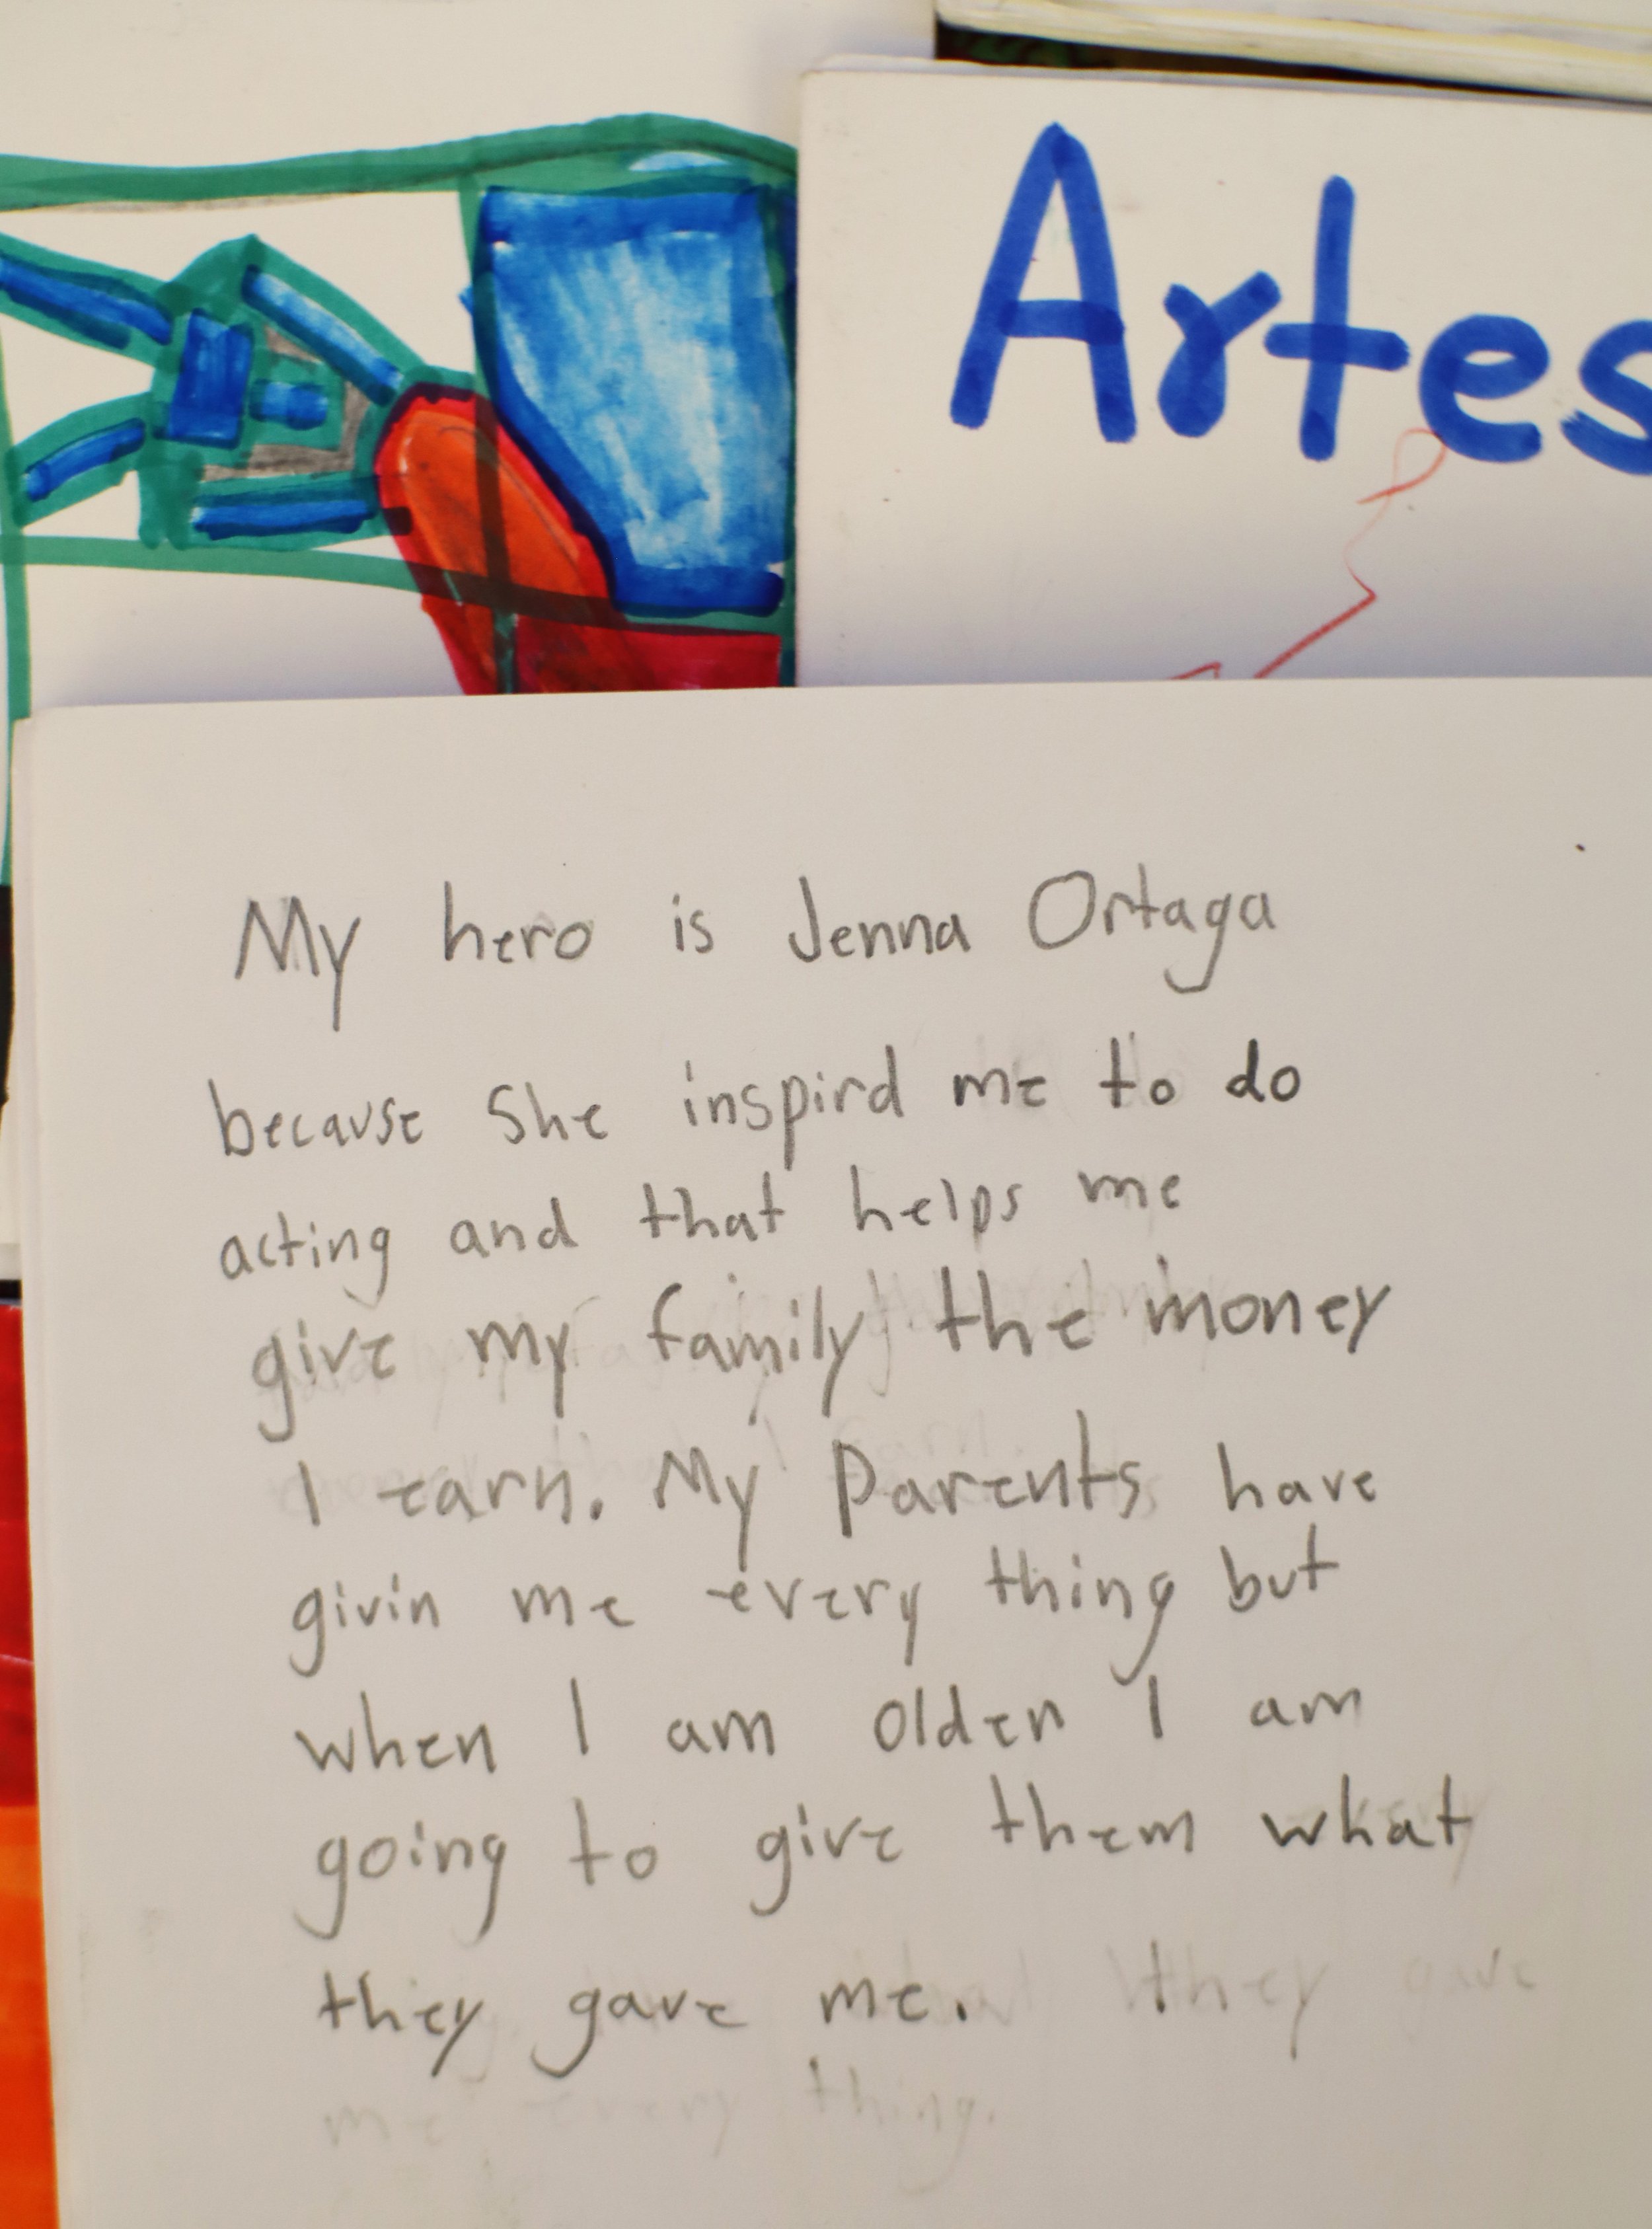 Artes
My hero is Jenna Ortaga
because she inspird me to do
acting and that helps me
give my family the money
I earn. My Parents have
givin me every thing but
when I am olden I am
going to give them what
they gave me. they gave
me every thing.